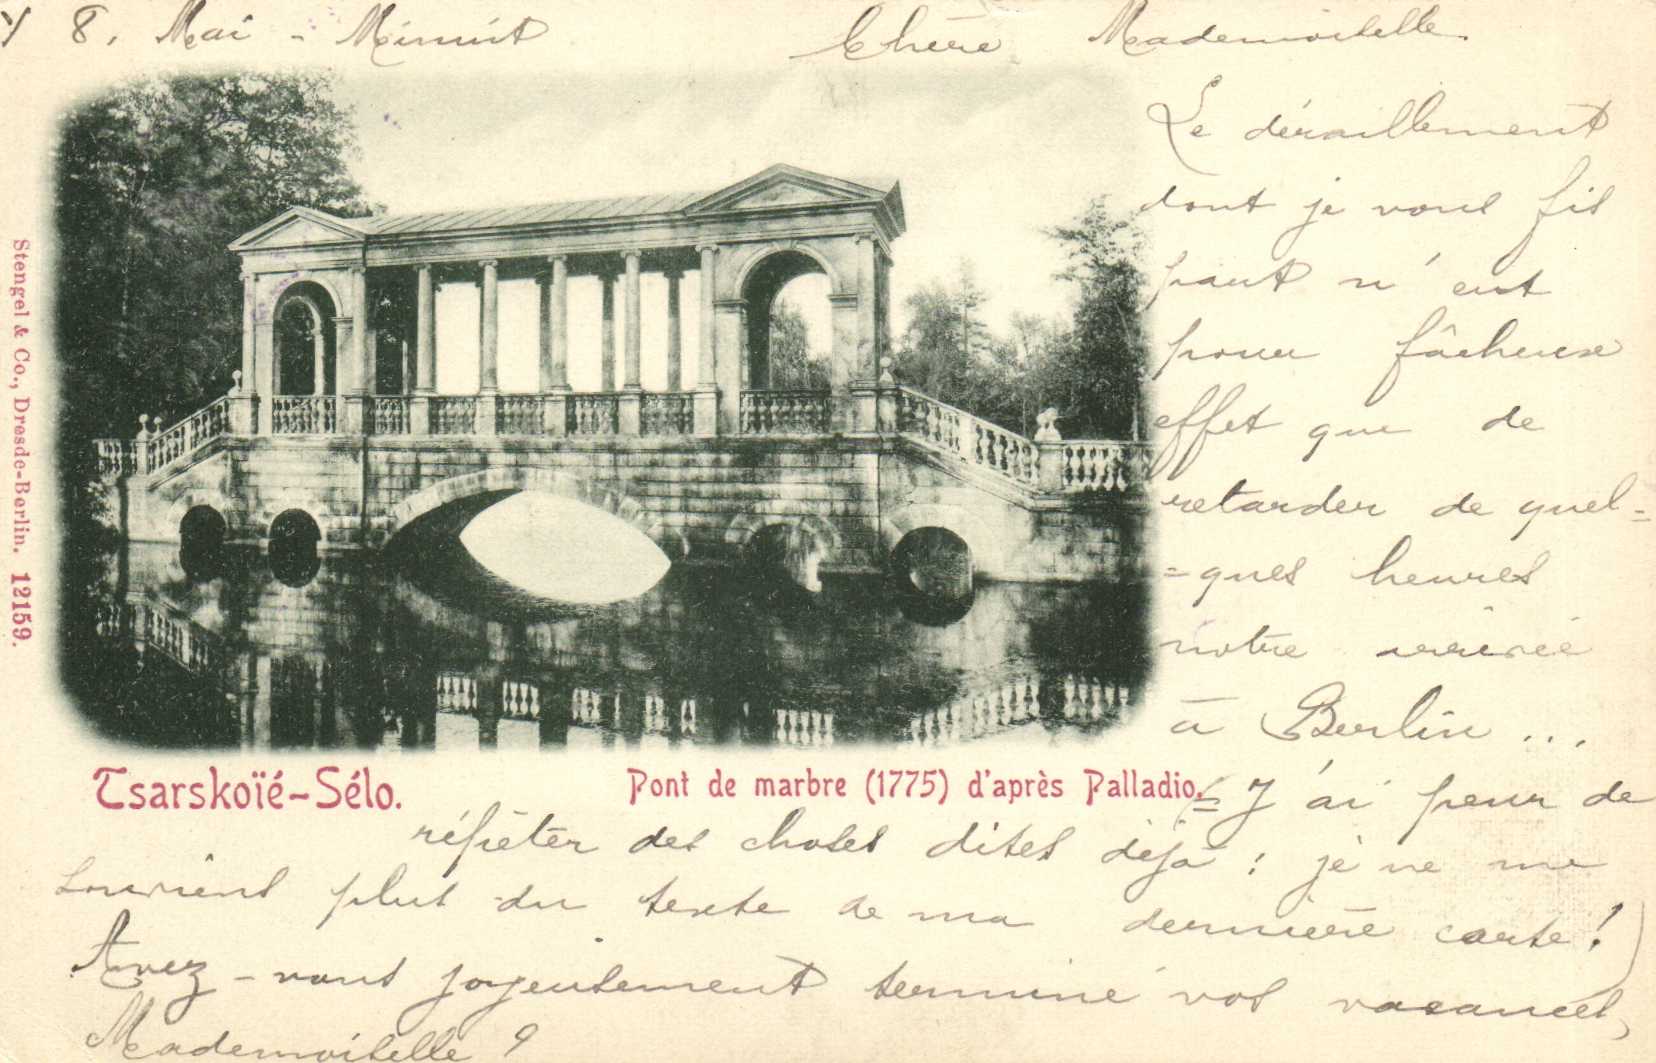 8. Mai - Minuit
Chère Mademoiselle.
Le déraillement
dont je vous fis
part n'eut
pour fâcheux
effet que de
retarder de quel=
=ques heures
notre arrivée
à Berlin ...
(= J'ai peur de
répéter des choses dites déjà : je ne me
souviens plus du texte de ma dernière carte !)
Avez-vous joyeusement terminé vos vacances,
Mademoiselle ?
Tsarskoïé-Sélo.
Pont de marbre (1775) d'après Palladio.
Stengel & Co., Dresde-Berlin. 12159.